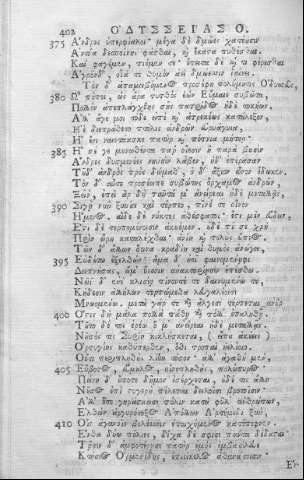 402 ΟΔΥΣΣΕΙΑΣ Ο.
375 Ἄνδρες ὑπερφίαλοι· μέγα δὲ δμῶες χατέουσιν
Ἀντία δεσποίνης φάσθαι, καὶ ἕκαστα πυθέσθαι,
Καὶ φαγέμεν, πιέμεν τε· ἔπειτα δὲ καί τι φέρεσθαι
Ἀγρόνδ', οἷά τε θυμὸν ἀεὶ δμώεσσιν ἰαίνει.
Τὸν δ' ἀπαμειβόμενος προσέφη πολύμητις Ὀδυσσεύς,
380 Ὢ πόποι, ὡς ἄρα τυτθὸς ἐὼν Εὔμαιε συβῶτα
Πολλὸν ἀπεπλάγχθης σῆς πατρίδος ἠδὲ τοκήων.
Ἀλλ' ἄγε μοι τόδε εἰπὲ καὶ ἀτρεκέως κατάλεξον,
Ἠὲ διεπράθετο πτόλις ἀνδρῶν εὐρυάγυια,
Ἧι ἔνι ναιετάασκε πατὴρ καὶ πότνια μήτηρ·
385 Ἢ σέ γε μουνωθέντα παρ' οἴεσιν ἢ παρὰ βουσὶν
Ἄνδρες δυσμενέες νηυσὶν λάβον, ἠδ' ἐπέρασσαν
Τοῦδ' ἀνδρὸς πρὸς δώμαθ', ὁ δ' ἄξιον ὦνον ἔδωκεν.
Τὸν δ' αὖτε προσέειπε συβώτης ὄρχαμος ἀνδρῶν
Ξεῖν', ἐπεὶ ἂρ δὴ ταῦτά μ' ἀνείρεαι ἠδὲ μεταλλᾷς,
390 Σιγῇ νῦν ξυνίει καὶ τέρπεο, πῖνέ τε οἶνον
Ἥμενος. αἵδε δὲ νύκτες ἀθέσφατοι· ἔστι μὲν εὕδειν,
Ἔστι δὲ τερπομένοισιν ἀκουέμεν. οὐδέ τί σε χρὴ
Πρὶν ὥρη καταλέχθαι· ἀνίη καὶ πολὺς ὕπνος.
Τῶν δ' ἄλλων ὅτινα κραδίη καὶ θυμὸς ἀνώγει,
395 Εὑδέτω ἐξελθών· ἅμα δ' ἠοῖ φαινομένηφι
Δειπνήσας, ἅμ' ὕεσσιν ἀνακτορίῃσιν ἑπέσθω.
Νῶϊ δ' ἐνὶ κλισίῃ πίνοντέ τε δαινυμένω τε
Κήδεσιν ἀλλήλων τερπώμεθα λευγαλέοισι
Μνωομένω. μετὰ γάρ τε καὶ ἄλγεσι τέρπεται ἀνὴρ
400 Ὅστις δὴ μάλα πολλὰ πάθῃ καὶ πόλλ' ἐπαληθῇ.
Τοῦτο δέ τοι ἐρέω ὅ μ' ἀνείρεαι ἠδὲ μεταλλᾷς.
Νῆσός τις Συρίη κικλήσκεται, (εἴ που ἀκούεις)
Ὀρτυγίης καθύπερθεν, ὅθι τροπαὶ ἠελίοιο,
Οὔτι περιπληθὴς λίην τόσον· ἀλλ' ἀγαθὴ μέν,
405 Εὔβοτος, εὔμηλος, οἰνοπληθής, πολύπυρος·
Πείνη δ' οὔποτε δῆμον ἐσέρχεται, οὐδέ τις ἄλλη
Νοῦσος ἐπὶ στυγερὴ πέλεται δειλοῖσι βροτοῖσιν·
Ἀλλ' ὅτε γηράσκωσι πόλιν κάτα φῦλ' ἀνθρώπων,
Ἐλθὼν ἀργυρότοξος Ἀπόλλων Ἀρτέμιδι ξὺν,
410 Οἷς ἀγανοῖς βελέεσσιν ἐποιχόμενος κατέπεφνεν.
Ἔνθα δύω πόλιες, δίχα δέ σφισι πάντα δέδασται·
Τῇσιν δ' ἀμφοτέρῃσι πατὴρ ἐμὸς ἐμβασίλευε
Κτήσιος Ὀρμενίδης, ἐπιείκελος ἀθανάτοισιν.